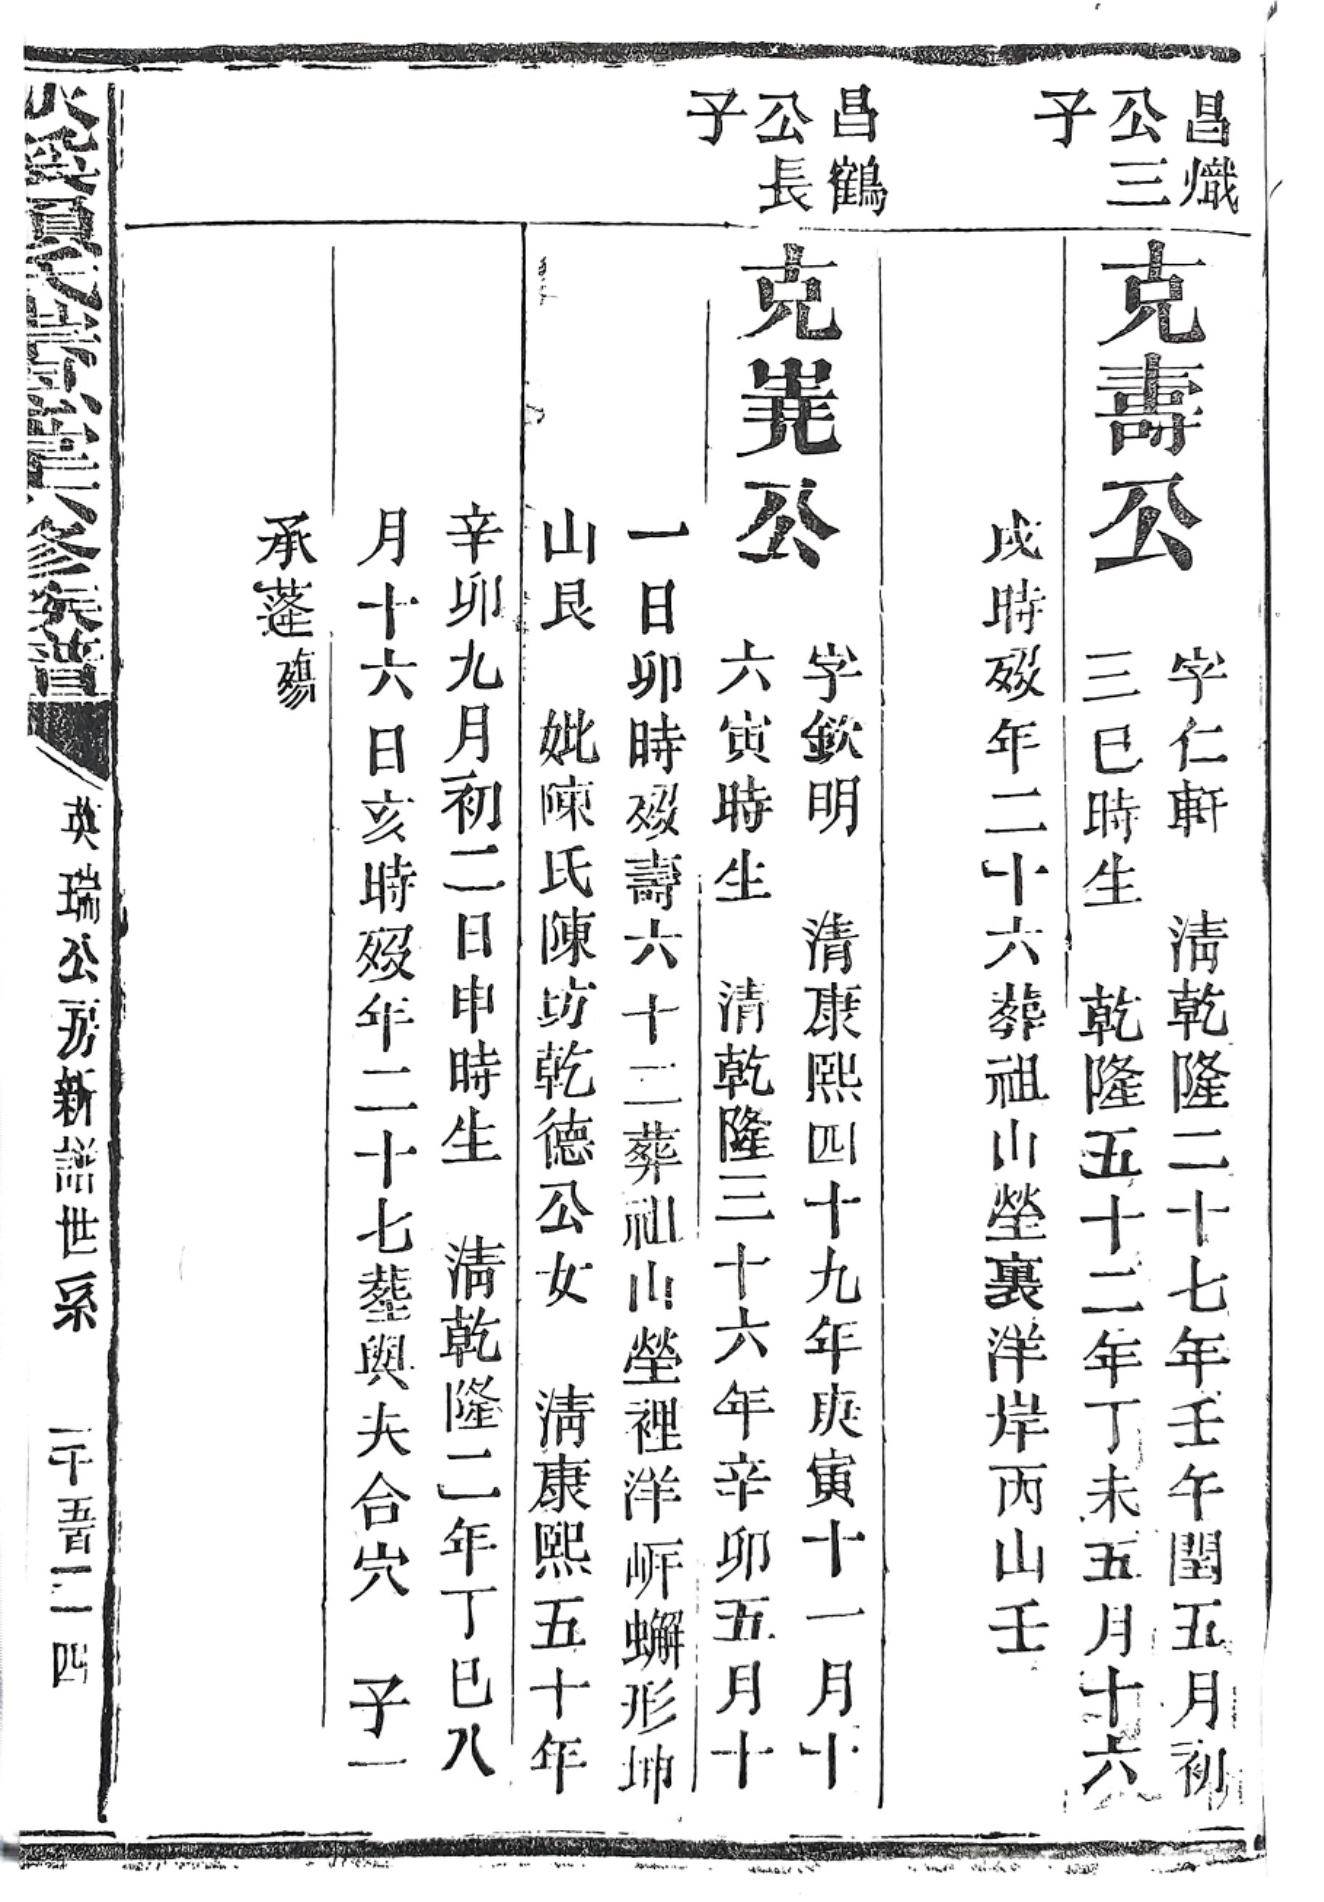 昌熾
公三
子
克壽公
字仁軒 清乾隆二十七年壬午閏五月初
三巳時生 乾隆五十二年丁未五月十六
戌時歿年二十六葬祖山塋裏洋岸丙山壬
昌鶴
公長
子
克㟯公
字欽明 清康熙四十九年庚寅十一月十
六寅時生 清乾隆三十六年辛卯五月十
一日卯時歿壽六十二葬祖山塋裡洋岍蠏形坤
山艮 妣陳氏陳坊乾德公女 清康熙五十年
辛卯九月初二日申時生 清乾隆二年丁巳八
月十六日亥時歿年二十七塟與夫合穴 子一
承蓬殤
氏 六修族普
英瑞公房新譜世系 一千五百二四